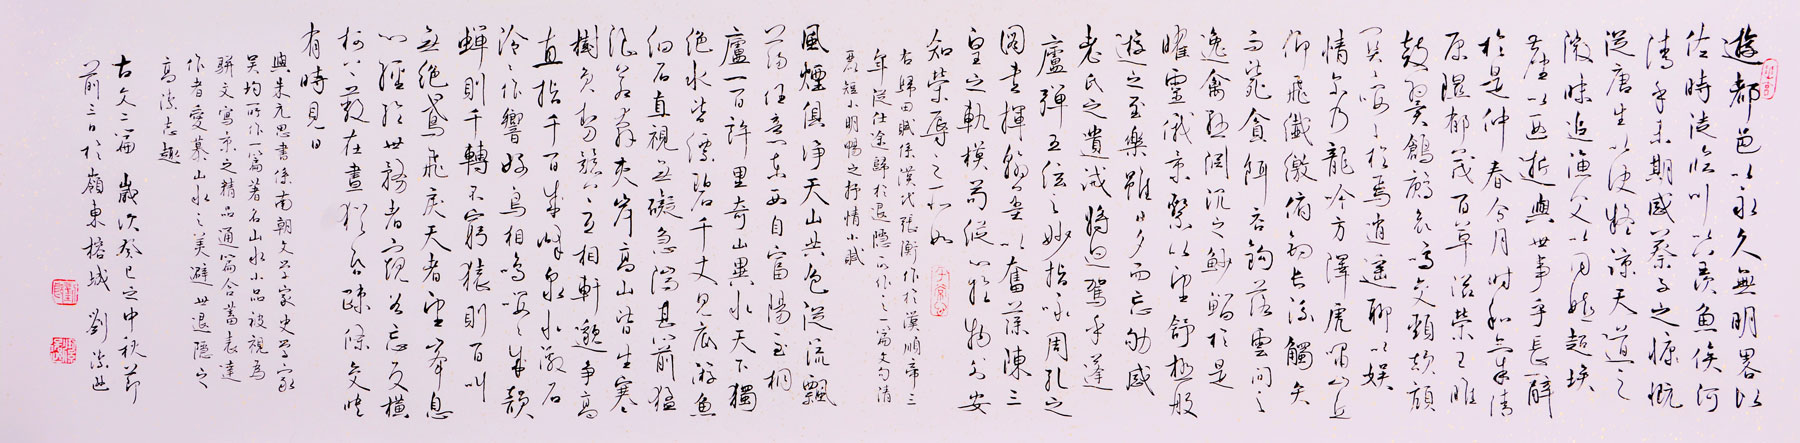 遊都邑以永久無明略以
佐時徒臨川以羨魚俟河
清乎未期感蔡子之慷慨
從唐生以決疑諒天道之
微昧追漁父以同嬉超埃
塵以遐逝與世事乎長辭
於是仲春令月時和氣清
原隰郁茂百草滋榮王雎
鼓翼鶬鶊哀鳴交頸頡頏
關關嚶嚶於焉逍遙聊以娛
情爾乃龍吟方澤虎嘯山丘
仰飛纖繳俯釣長流觸矢
而斃貪餌吞鉤落雲間之
逸禽懸淵沉之魦鰡於是
曜靈俄景繫以望舒極般
遊之至樂雖日夕而忘劬感
老氏之遺誡將迴駕乎蓬
廬彈五弦之妙指詠周孔之
圖書揮翰墨以奮藻陳三
皇之軌模苟縱心於物外安
知榮辱之所如
右歸田賦係漢代張衡作於漢順帝三
年從仕途歸於退隱而作之篇文句清
麗短小明暢之抒情小賦
風煙俱淨天山共色從流飄
蕩任意東西自富陽至桐
廬一百許里奇山異水天下獨
絕水皆縹碧千丈見底游魚
細石直視無礙急湍甚箭猛
浪若奔夾岸高山皆生寒
樹負勢競上互相軒邈爭高
直指千百成峰泉水激石
泠泠作響好鳥相鳴嚶嚶成韻
蟬則千轉不窮猿則百叫
無絕鳶飛戾天者望峯息
心經綸世務者窺谷忘反橫
柯上蔽在晝猶昏疎條交映
有時見日
與朱元思書係南朝文學家史學家
吳均所作一篇著名山水小品被視為
駢文寫景之精品通篇含蓄表達
作者愛慕山水之美避世退隱之
高潔志趣
古文二篇 歲次癸巳之中秋節
前三日於嶺東榕城 劉